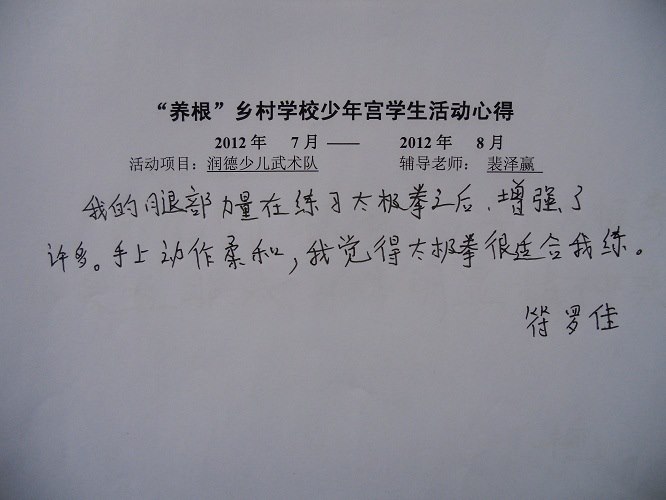 “养根”乡村学校少年宫学生活动心得
2012年 7月 —— 2012年 8月
活动项目：润德少儿武术队 辅导老师：裴泽赢
我的腿部力量在练习太极拳之后，增强了
许多。手上动作柔和，我觉得太极拳很适合我练。
符罗佳